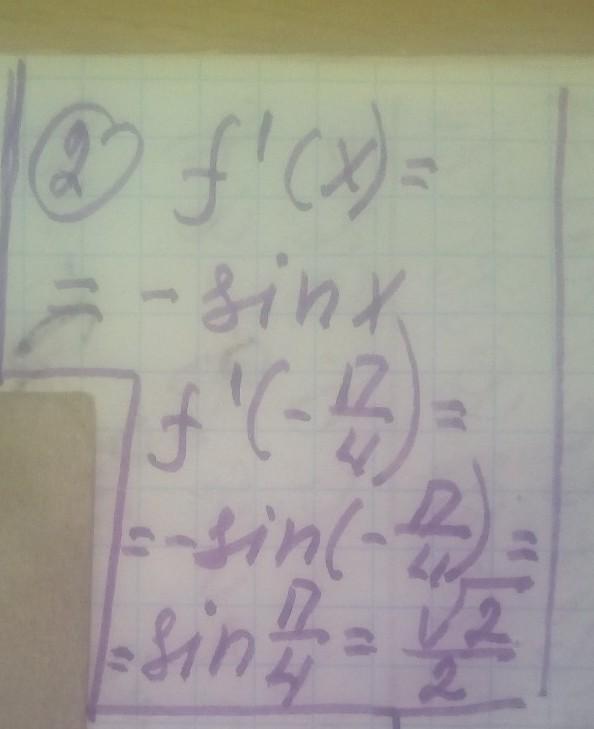 ② f'(x) =
= - sin x
f'(-π/4) =
= - sin(-π/4) =
= sin π/4 = √2/2